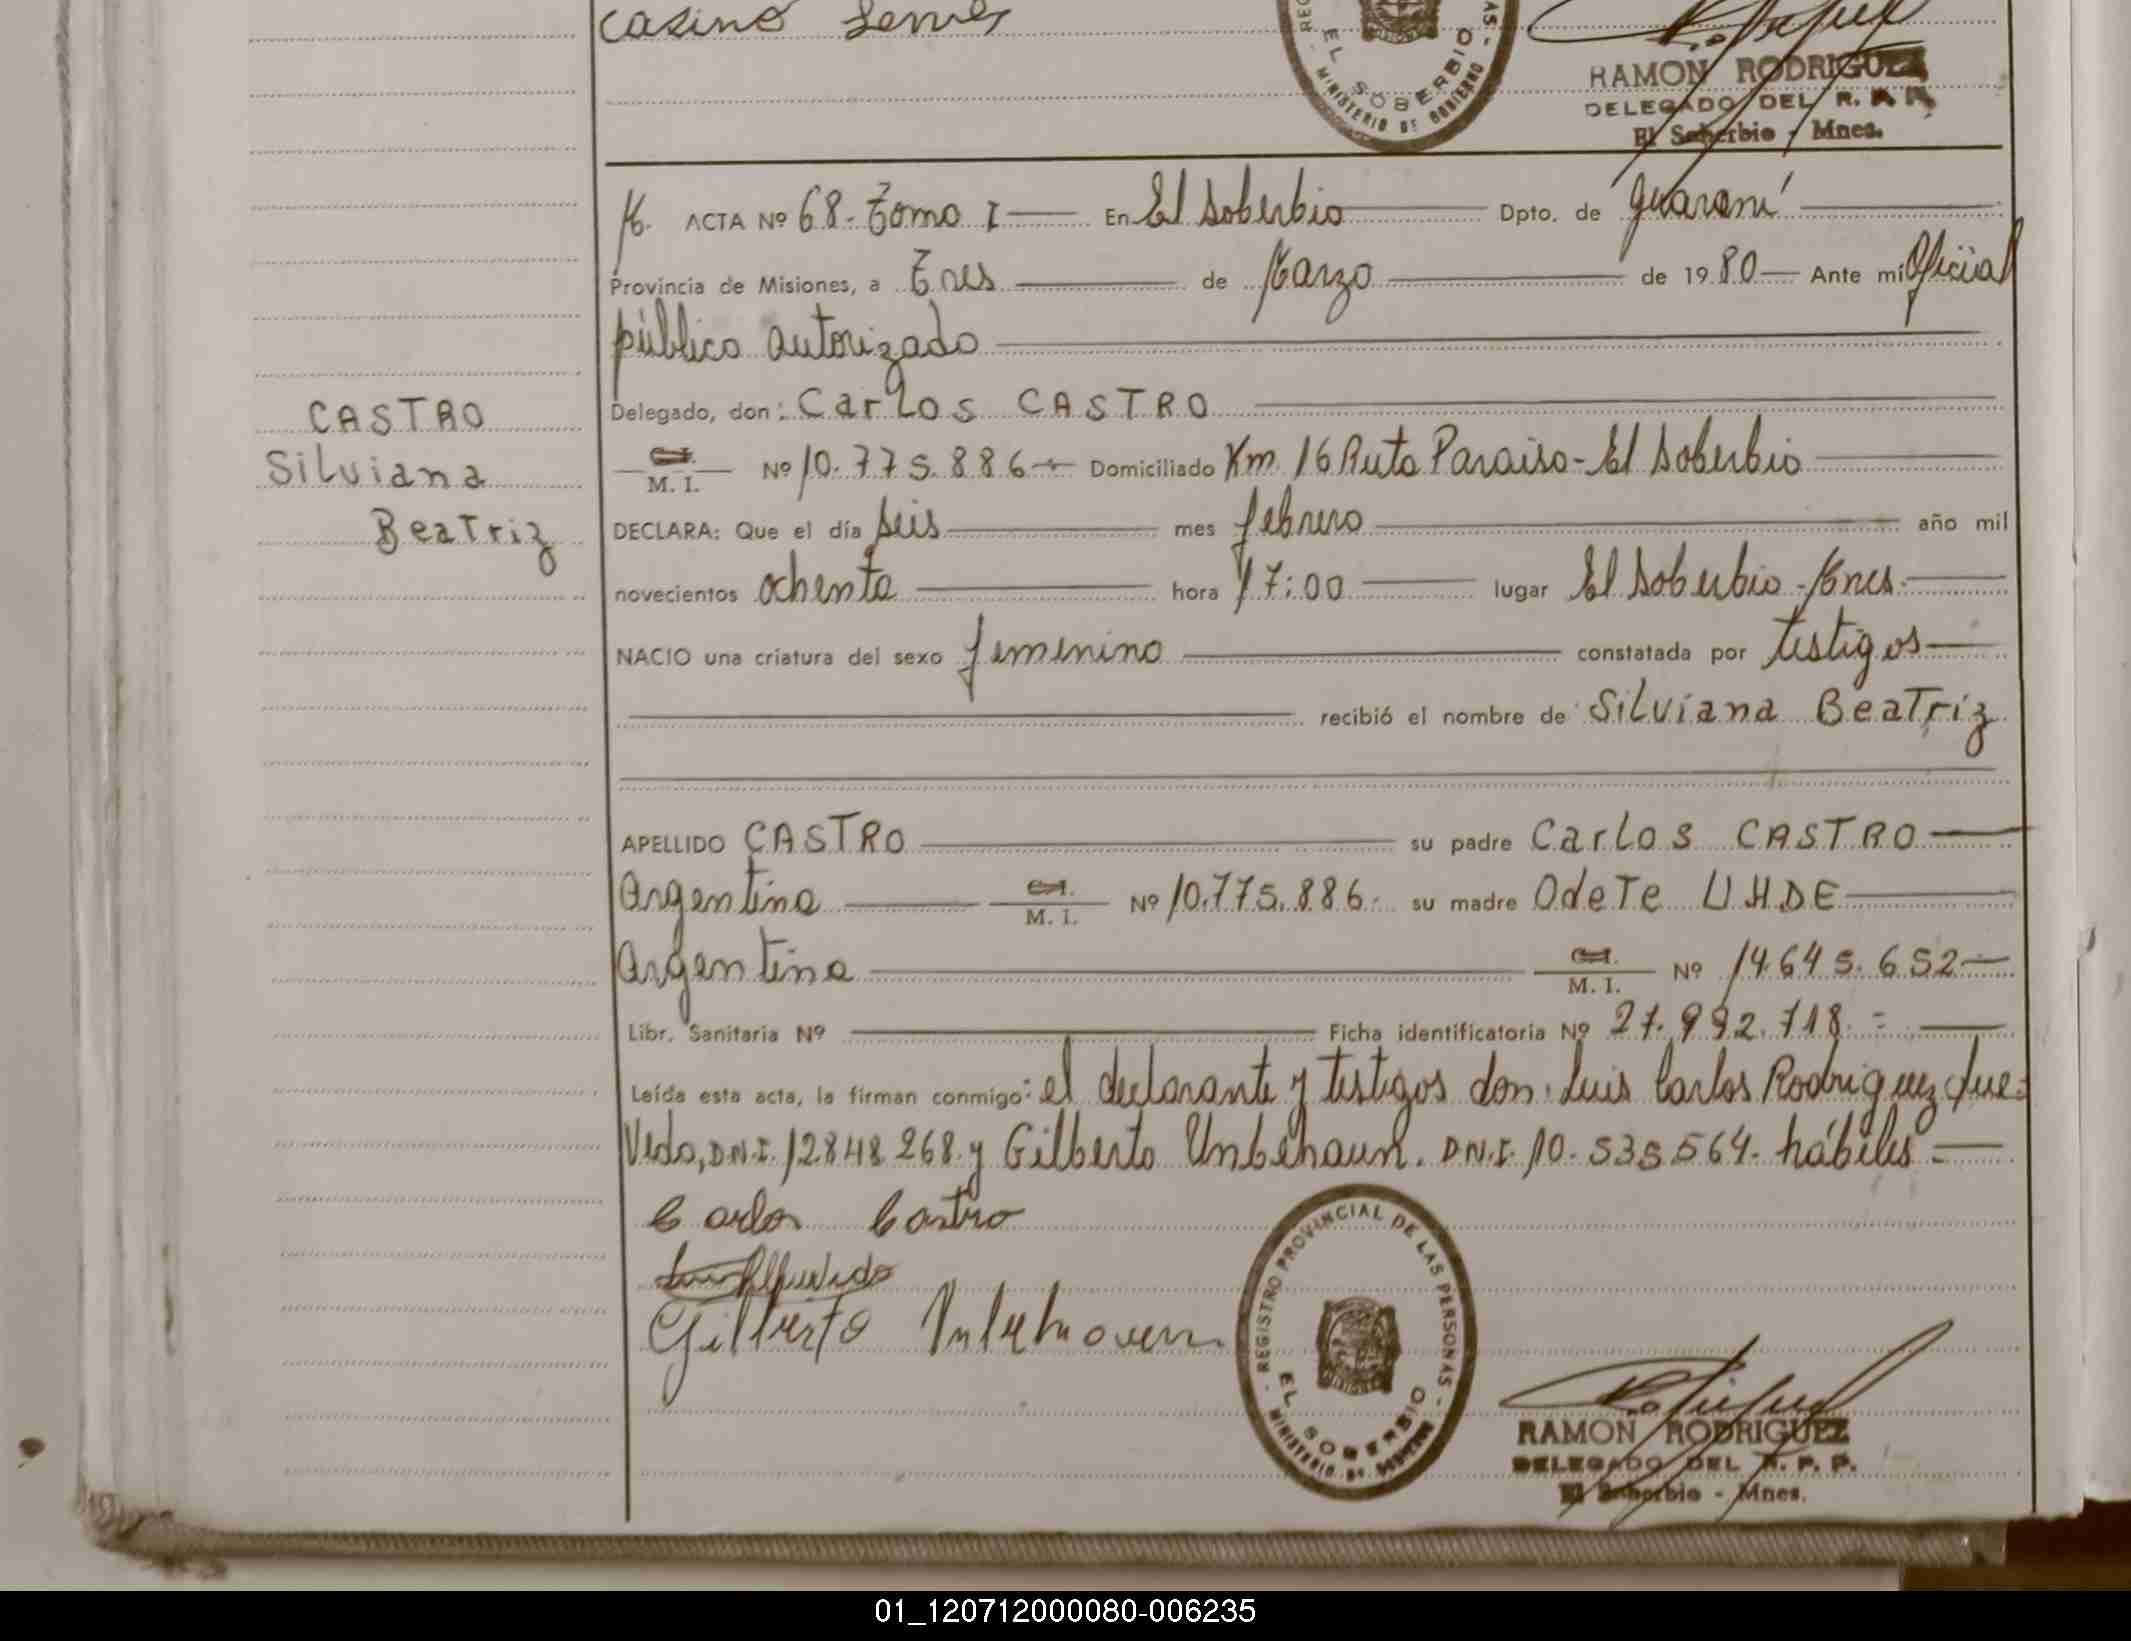 Casimo
EL SOBERBIO
MINISTERIO DE GOBIERNO
RAMON RODRIGUEZ
DELEGADO DEL R.
El Soberbio - Mnes.
M. ACTA Nº 68- Tomo I En El Soberbio Dpto. de Guaraní
Provincia de Misiones, a Tres de Marzo de 1980 Ante mi Oficial
público autorizado
Delegado, don: Carlos CASTRO
CASTRO
C.I. M. I. Nº 10.775.886 Domiciliado Km. 16 Ruta Paraiso-El Soberbio
Silviana
DECLARA: Que el día seis mes febrero año mil
Beatriz
novecientos ochenta hora 17:00 lugar El Soberbio-Mnes.
NACIO una criatura del sexo femenino constatada por testigos
recibió el nombre de Silviana Beatriz
APELLIDO CASTRO su padre Carlos CASTRO
Argentina C.I. M. I. Nº 10.775.886. su madre OdeTe UHDE
Argentina C.I. M. I. Nº 14.645.652
Libr. Sanitaria Nº Ficha identificatoria Nº 27.992.718.=
Leída esta acta, la firman conmigo: el declarante y testigos don: Luis Carlos Rodriguez Que=
Vedo, D.N.I. 12.848.268. y Gilberto Unbehaun. D.N.I. 10.535.564. hábiles=
Carlos Castro
Gilberto
REGISTRO PROVINCIAL DE LAS PERSONAS
EL SOBERBIO
MINISTERIO DE GOBIERNO
RAMON RODRIGUEZ
DELEGADO DEL R. P. P.
El Soberbio - Mnes.
01_120712000080-006235